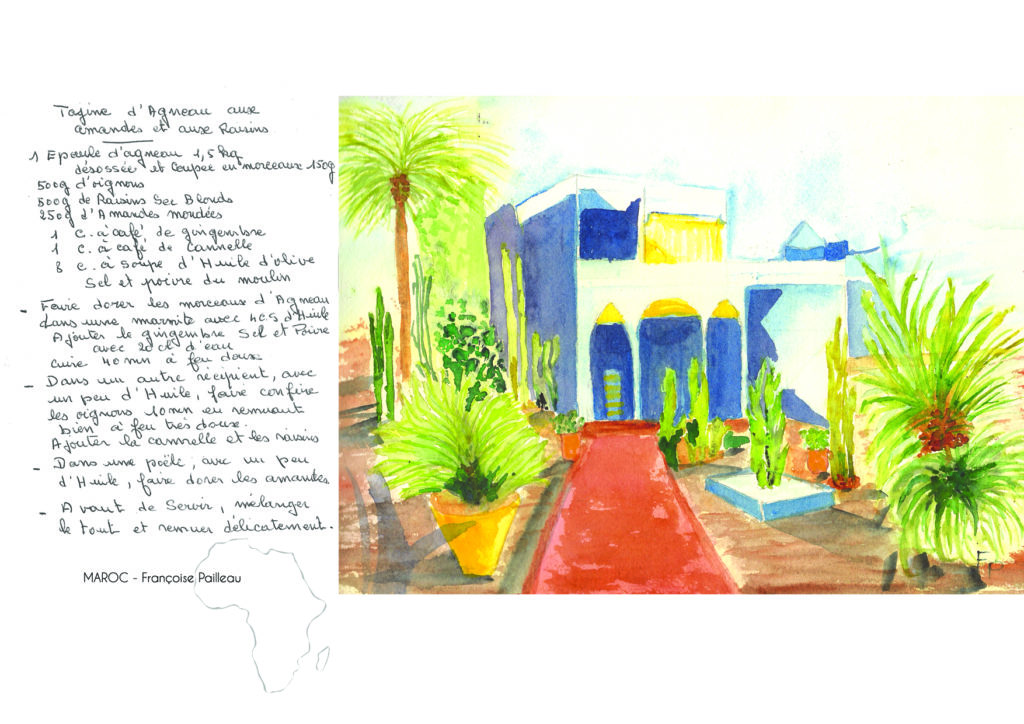 Tajine d'Agneau aux
amandes et aux Raisins
1 Epaule d'agneau 1,5 kg
désossée et Coupée en morceaux 150g
500g d'oignons
500g de Raisins Sec Blonds
250g d'Amandes mondées
1 c. à café de gingembre
1 c. à café de Cannelle
8 c. à soupe d'Huile d'olive
Sel et poivre du moulin
- Faire dorer les morceaux d'Agneau
dans une marmite avec 4CS d'Huile
Ajouter le gingembre Sel et Poivre
avec 20 cl d'eau
cuire 40 mn à feu doux.
- Dans un autre récipient, avec
un peu d'Huile, faire confire
les oignons 10mn en remuant
bien à feu très doux.
Ajouter la cannelle et les raisins
- Dans une poêle, avec un peu
d'Huile, faire dorer les amandes
- Avant de Servir, mélanger
le tout et remuer délicatement.
MAROC - Françoise Pailleau